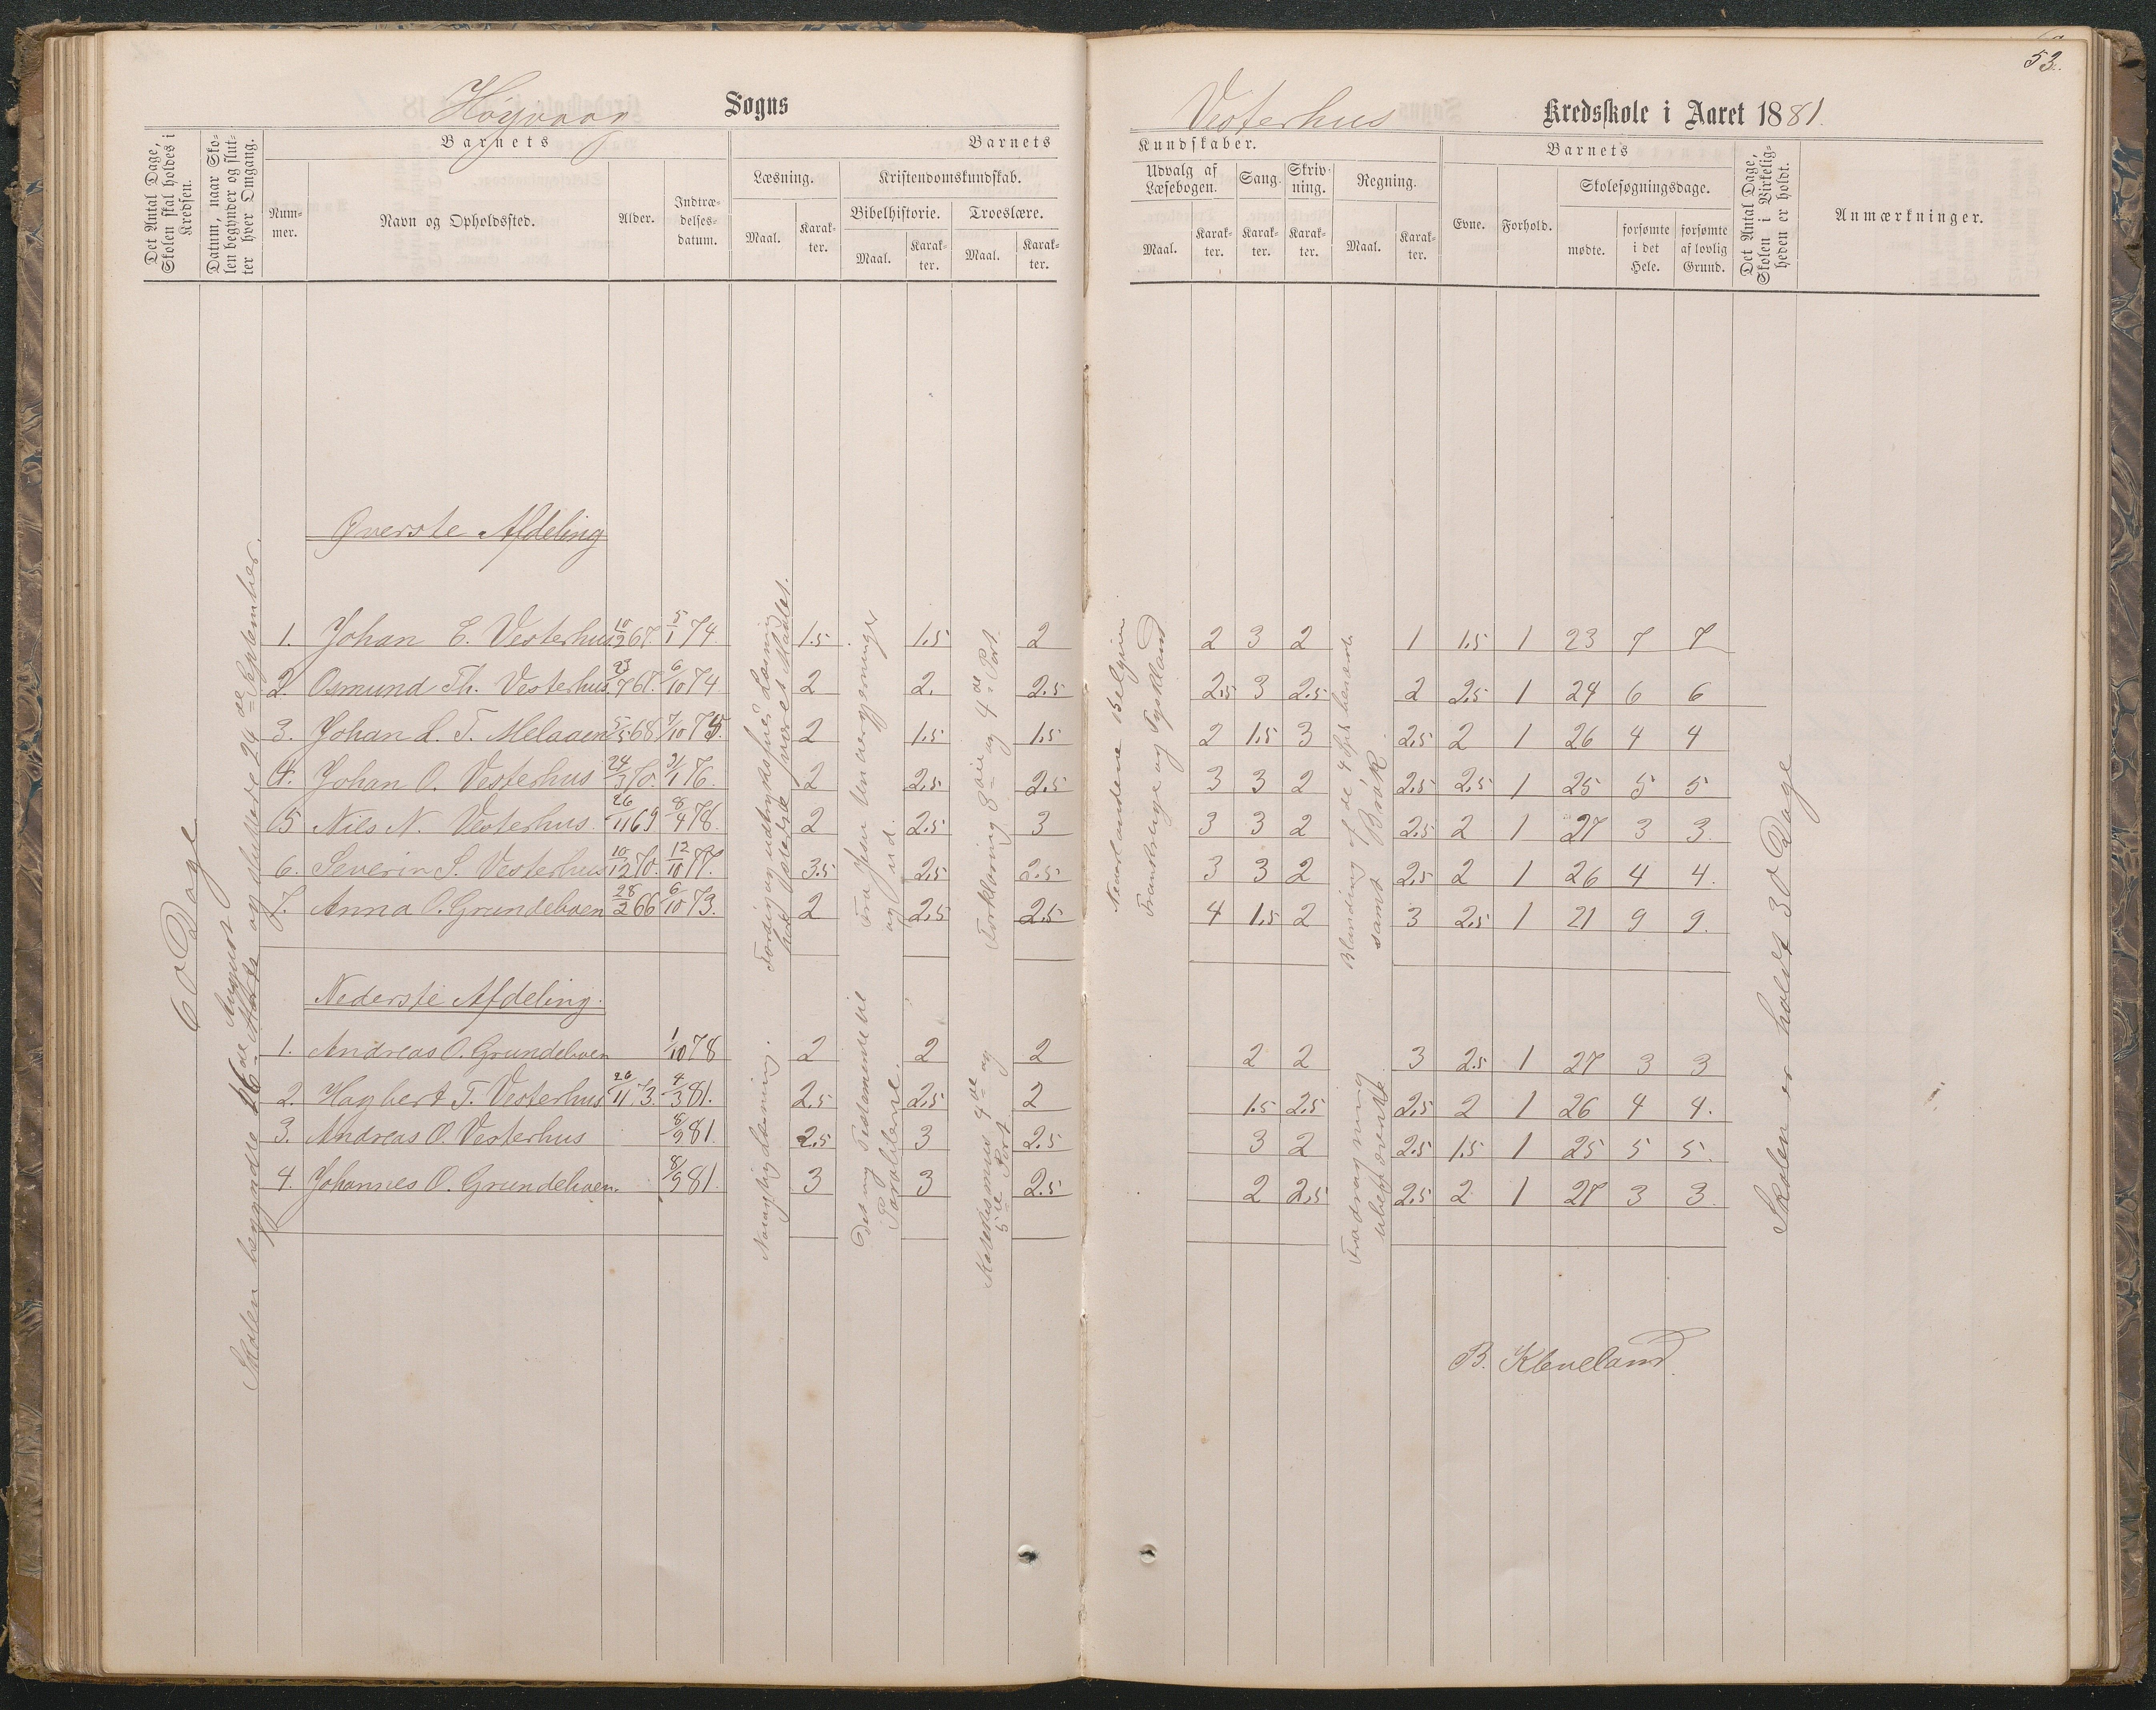 53.
Høyvaag Sogns
Vesterhus Kredsskole i Aaret 1881.
Det Antal Dage, Skolen skal holdes i Kredsen.
Datum, naar Skolen begynder og slutter hver Omgang.
Barnets
Nummer.
Navn og Opholdssted.
Alder.
Indtrædelsesdatum.
Barnets
Læsning.
Maal.
Karakter.
Kristendomskundskab.
Bibelhistorie.
Maal.
Karakter.
Troeslære.
Maal.
Karakter.
Kundskaber.
Udvalg af Læsebogen.
Maal.
Karakter.
Sang.
Karakter.
Skrivning.
Karakter.
Regning.
Maal.
Karakter.
Barnets
Evne.
Forhold.
Skolesøgningsdage.
mødte.
forsømte i det Hele.
forsømte af lovlig Grund.
Det Antal Dage, Skolen i Virkeligheden er holdt.
Anmærkninger.
60 Dage
Skolen begyndte 26de August og sluttede 24de September.
Øverste Afdeling
1. Johan E. Vesterhus 10/2 67. 5/1 74. 1.5 1.5 2 2 3 2 1 1.5 1 23 7 7
2. Osmund Th. Vesterhus 23/7 67. 6/10 74 2 2. 2.5 2.5 3 2.5 2 2.5 1 24 6 6
3. Johan L. T. Melaaen 5/5 68 7/10 75. 2 1.5 1.5 2 1.5 3 2.5 2 1 26 4 4
4. Johan O. Vesterhus 24/3 70. 31/1 76. 2 2.5 2.5 3 3 2 2.5 2.5 1 25 5 5
5 Nils N. Vesterhus. 26/11 69 8/4 78. 2 2.5 3 3 3 2 2.5 2 1 27 3 3.
6. Severin S. Vesterhus 10/12 70. 12/10 77. 3.5 2.5 2.5 3 3 2 2.5 2 1 26 4 4.
7. Anna O. Grundeboen 28/2 66 6/10 73. 2 2.5 2.5 4 1.5 2 3 2.5 1 21 9 9.
Færdig og udtryksfuld Læsning
Fra Jesu Undergjerninger
og ud.
Forklaring 3die og 4de Part.
Nederlandene Belgien
Frankrige og Tyskland
Blanding af de 4 Sp. benævnte
samt Brøk.
Nederste Afdeling.
1. Andreas O. Grundeboen 1/10 78 2 2 2 2 2 3 2.5 1 27 3 3
2. Hagbert T. Vesterhus 26/11 73. 4/3 81. 2.5 2.5 2 1.5 2.5 2.5 2 1 26 4 4.
3. Andreas O. Vesterhus 8/9 81. 2.5 3 2.5 3 2 2.5 1.5 1 25 5 5.
4. Johannes O. Grundeboen. 8/9 81. 3 3 2.5 2 2.5 2.5 2 1 27 3 3.
Det nye Testamente til
Parablerne.
Katekismus 4de og
5te Part
Fradragning
ubenævnte.
Skolen er holdt 30 Dage
B. Kleveland